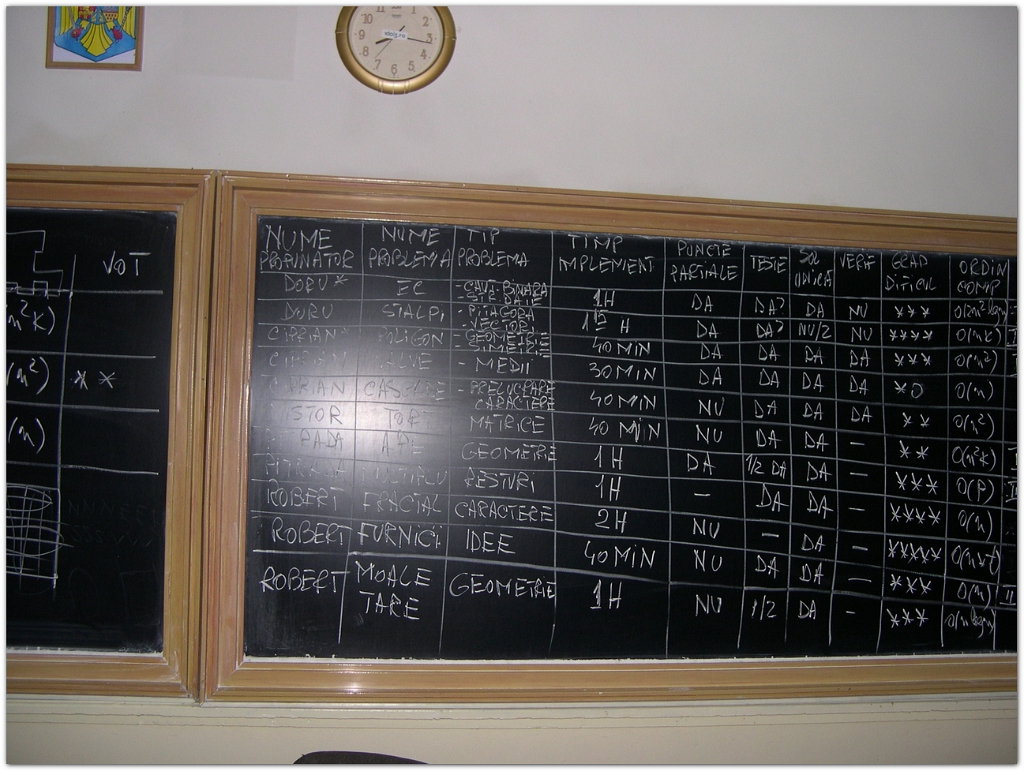 10
9
8
7
6
5
4
3
2
1
VOT
* *
NUME PROPUNATOR NUME PROBLEMA TIP PROBLEMA TIMP IMPLEMENT PUNCTE PARTIALE TESTE SOL UNICĂ VERIF GRAD DIFICUL ORDIN COMP
DORU* EC - CAUT. BINARA 1H DA DA? DA NU ***
DORU STALPI - PITAGORA - VECTORI H DA DA? NU/2 NU *** O(nk)
CIPRIAN* POLIGON - GEOMETRIE - SIMETRIE 40 MIN DA DA DA DA *** O(n²)
- MEDII 30 MIN DA DA DA DA O(n)
CIPRIAN - PRELUCRARE CARACTERE 40 MIN NU DA DA DA ** O(n²)
NISTOR TORT MATRICE 40 MIN NU DA DA - ** O(n²k)
GEOMETRIE 1H DA 1/2 DA DA - *** O(P)
MULTIPLU RESTURI 1H - DA DA - **** O(n)
ROBERT FRACTAL CARACTERE 2H NU - DA - *****
ROBERT FURNICI IDEE 40 MIN NU DA DA - *** O(n)
ROBERT MOALE TARE GEOMETRIE 1H NU 1/2 DA - *** O(n log n)